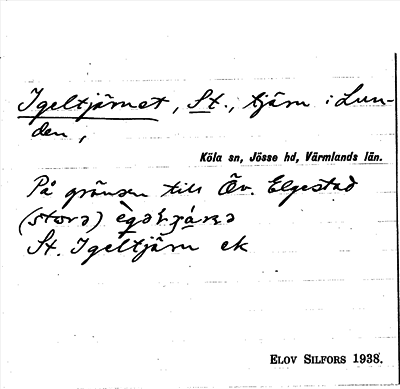 Igeltjärnet, St., tjärn i Lun-
den,
Köla sn, Jösse hd, Värmlands län.
På gränsen till Öv. Elgestad
(stora)
St. Igeltjärn ek
ELOV SILFORS 1938.